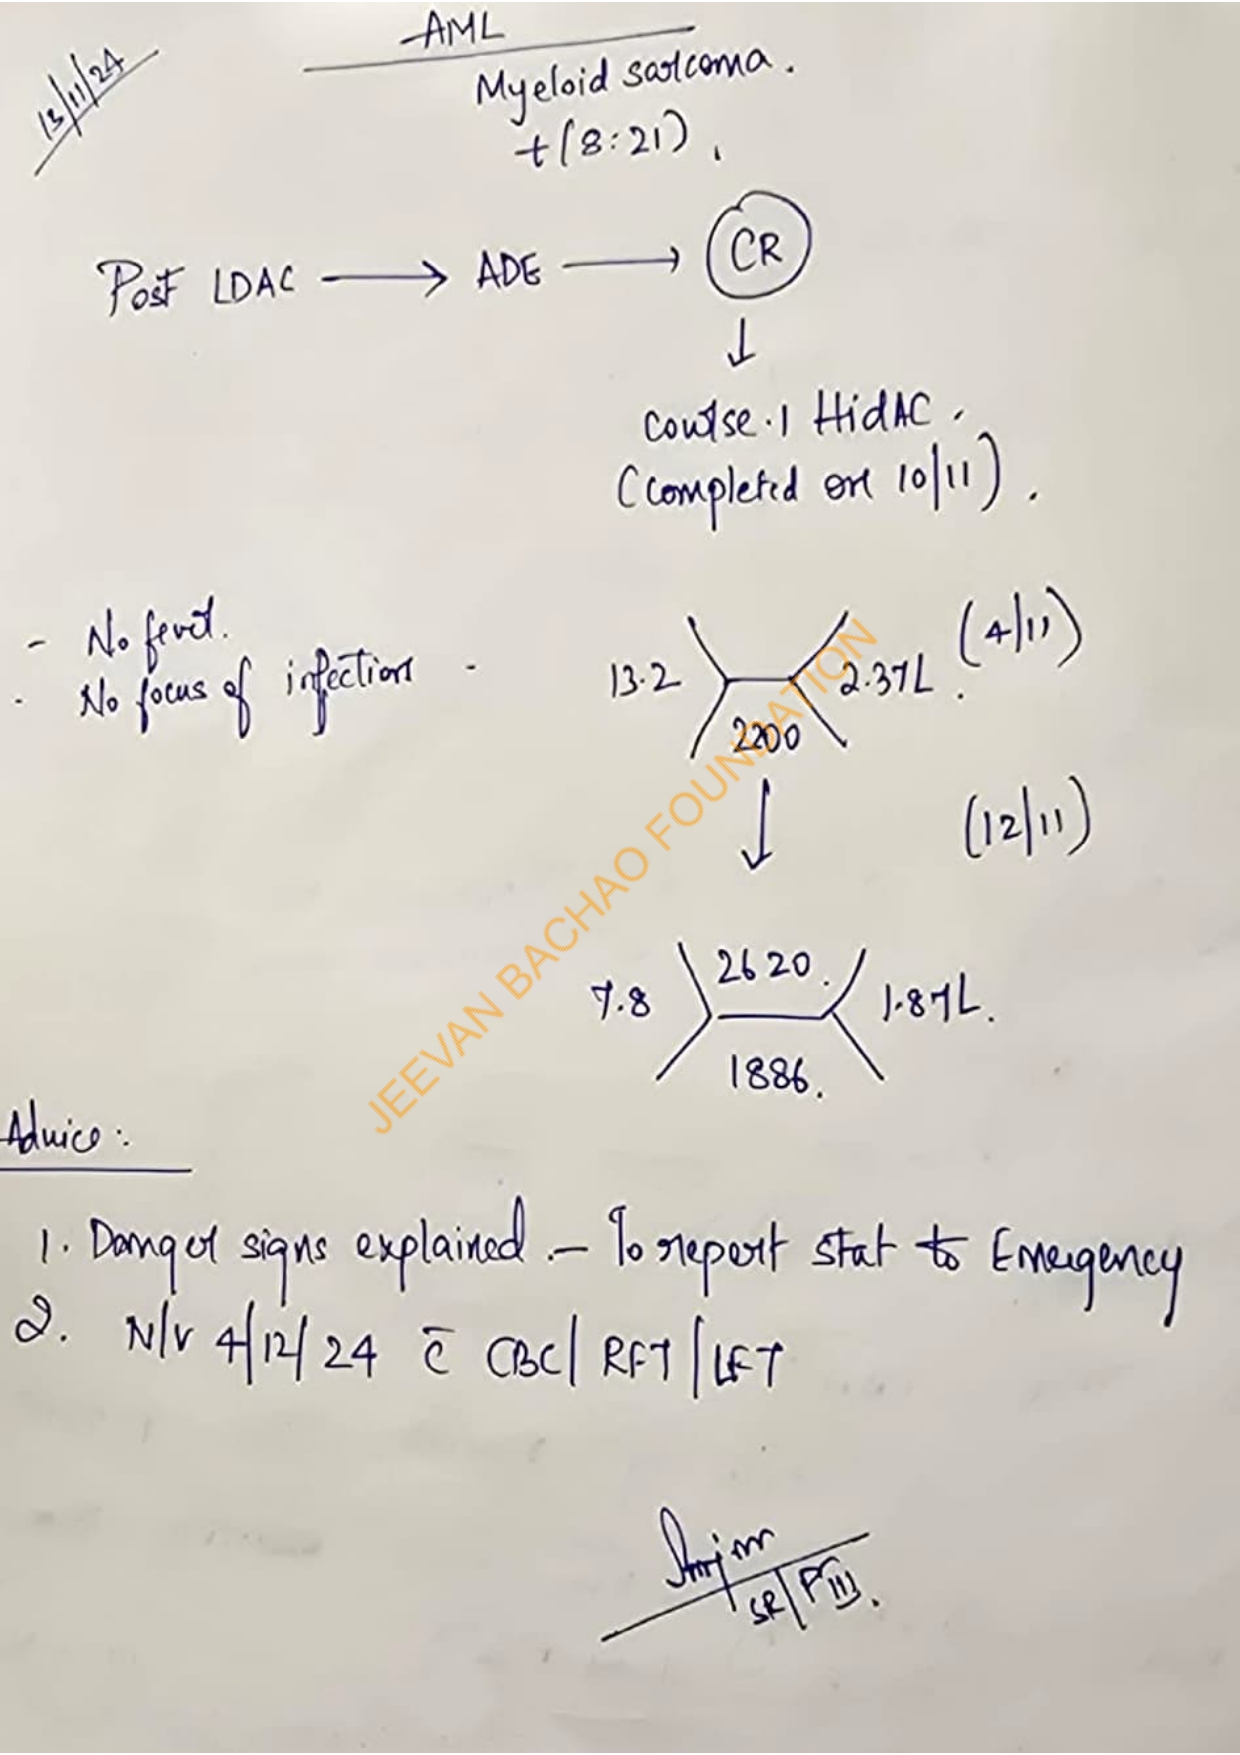 13/11/24
AML
Myeloid sarcoma.
t(8:21).
Post LDAC → ADE → CR
↓
Course.1 HidAC.
(Completed on 10/11).
- No fever.
- No focus of infection -
13.2 2200 2.37L. (4/11)
↓ (12/11)
7.8 2620. 1886. 1.87L.
JEEVAN BACHAO FOUNDATION
Advice:
1. Danger signs explained. - To report stat to Emergency
2. N/V 4/12/24 c̄ CBC/RFT/LFT
SR/PIII.